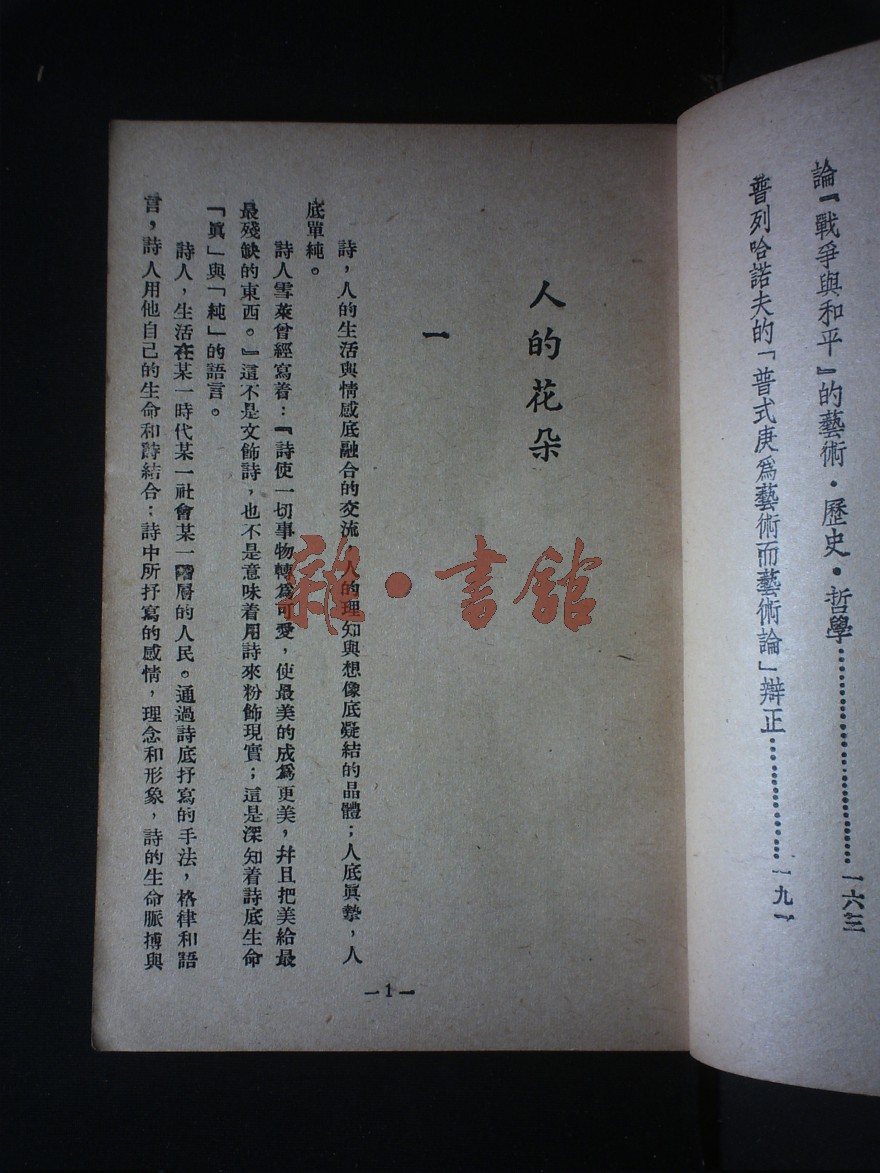 論『戰爭與和平』的藝術・歷史・哲學……………………一六三
普列哈諾夫的「普式庚爲藝術而藝術論」辯正……………一九一
人的花朵
一
詩，人的生活與情感底融合的交流，人的理知與想像底疑結的晶體；人底眞摯，人
底單純。
詩人雪萊曾經寫着：『詩使一切事物轉爲可愛，使最美的成爲更美，幷且把美給最
最殘缺的東西。』這不是文飾詩，也不是意味着用詩來粉飾現實；這是深知着詩底生命
「眞」與「純」的語言。
詩人，生活在某一時代某一社會某一階層的人民。通過詩底抒寫的手法，格律和語
言，詩人用他自己的生命和詩結合：詩中所抒寫的感情，理念和形象，詩的生命脈搏與
—1—
雜・書館